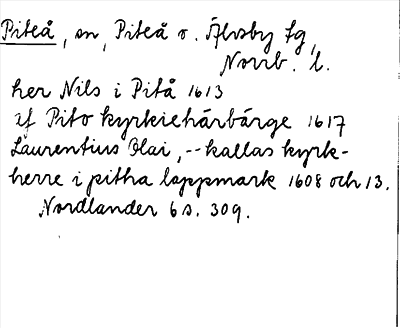 Piteå, sn, Piteå o. Älvsby tg,
Norrb. l.
her Nils i Pitå 1613
af Pito kyrkiehärbärge 1617
Laurentius Olai, -- kallas kyrk-
herre i pitha lappmark 1608 och 13.
Nordlander 6 s. 309.